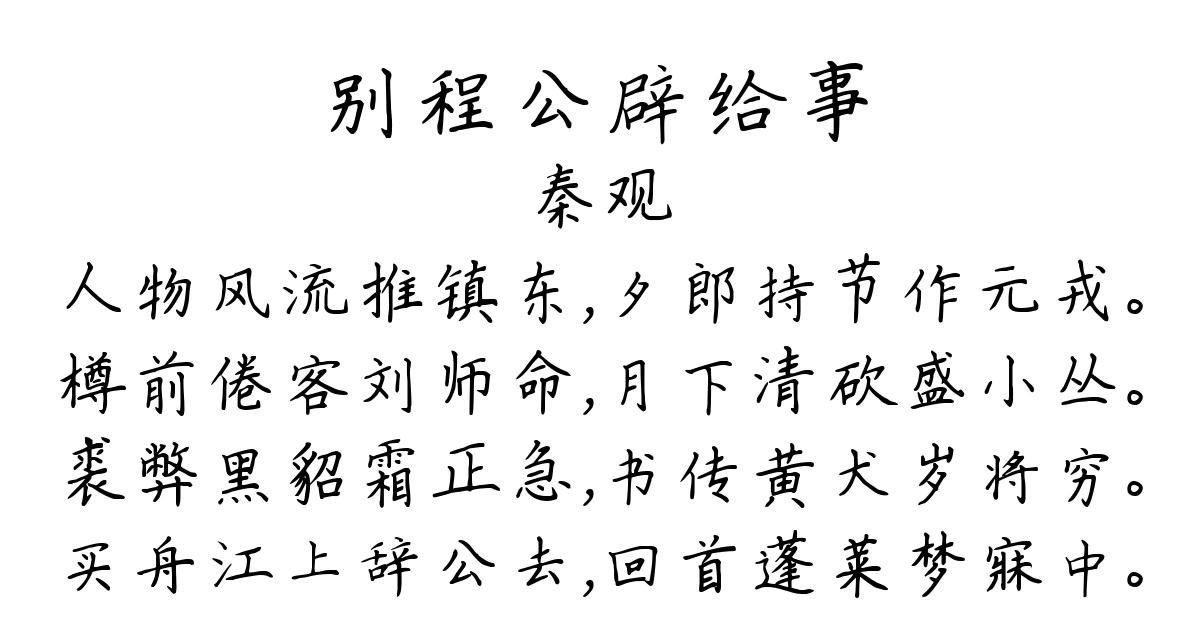 别程公辟给事
秦观
人物风流推镇东,夕郎持节作元戎。
樽前倦客刘师命,月下清砍盛小丛。
裘弊黑貂霜正急,书传黄犬岁将穷。
买舟江上辞公去,回首蓬莱梦寐中。